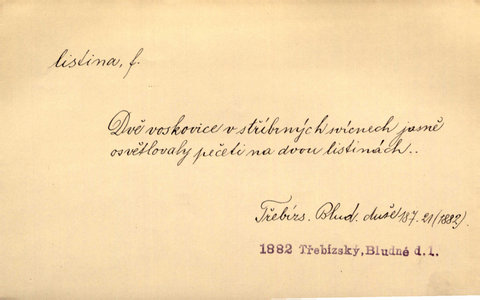 listina, f.
Dvě voskovice v stříbrných svícnech jasně
osvětlovaly pečeti na dvou listinách..
Třebízs. Blud. duše 187. 21 (1882).
1882 Třebízský, Bludné d. 1.